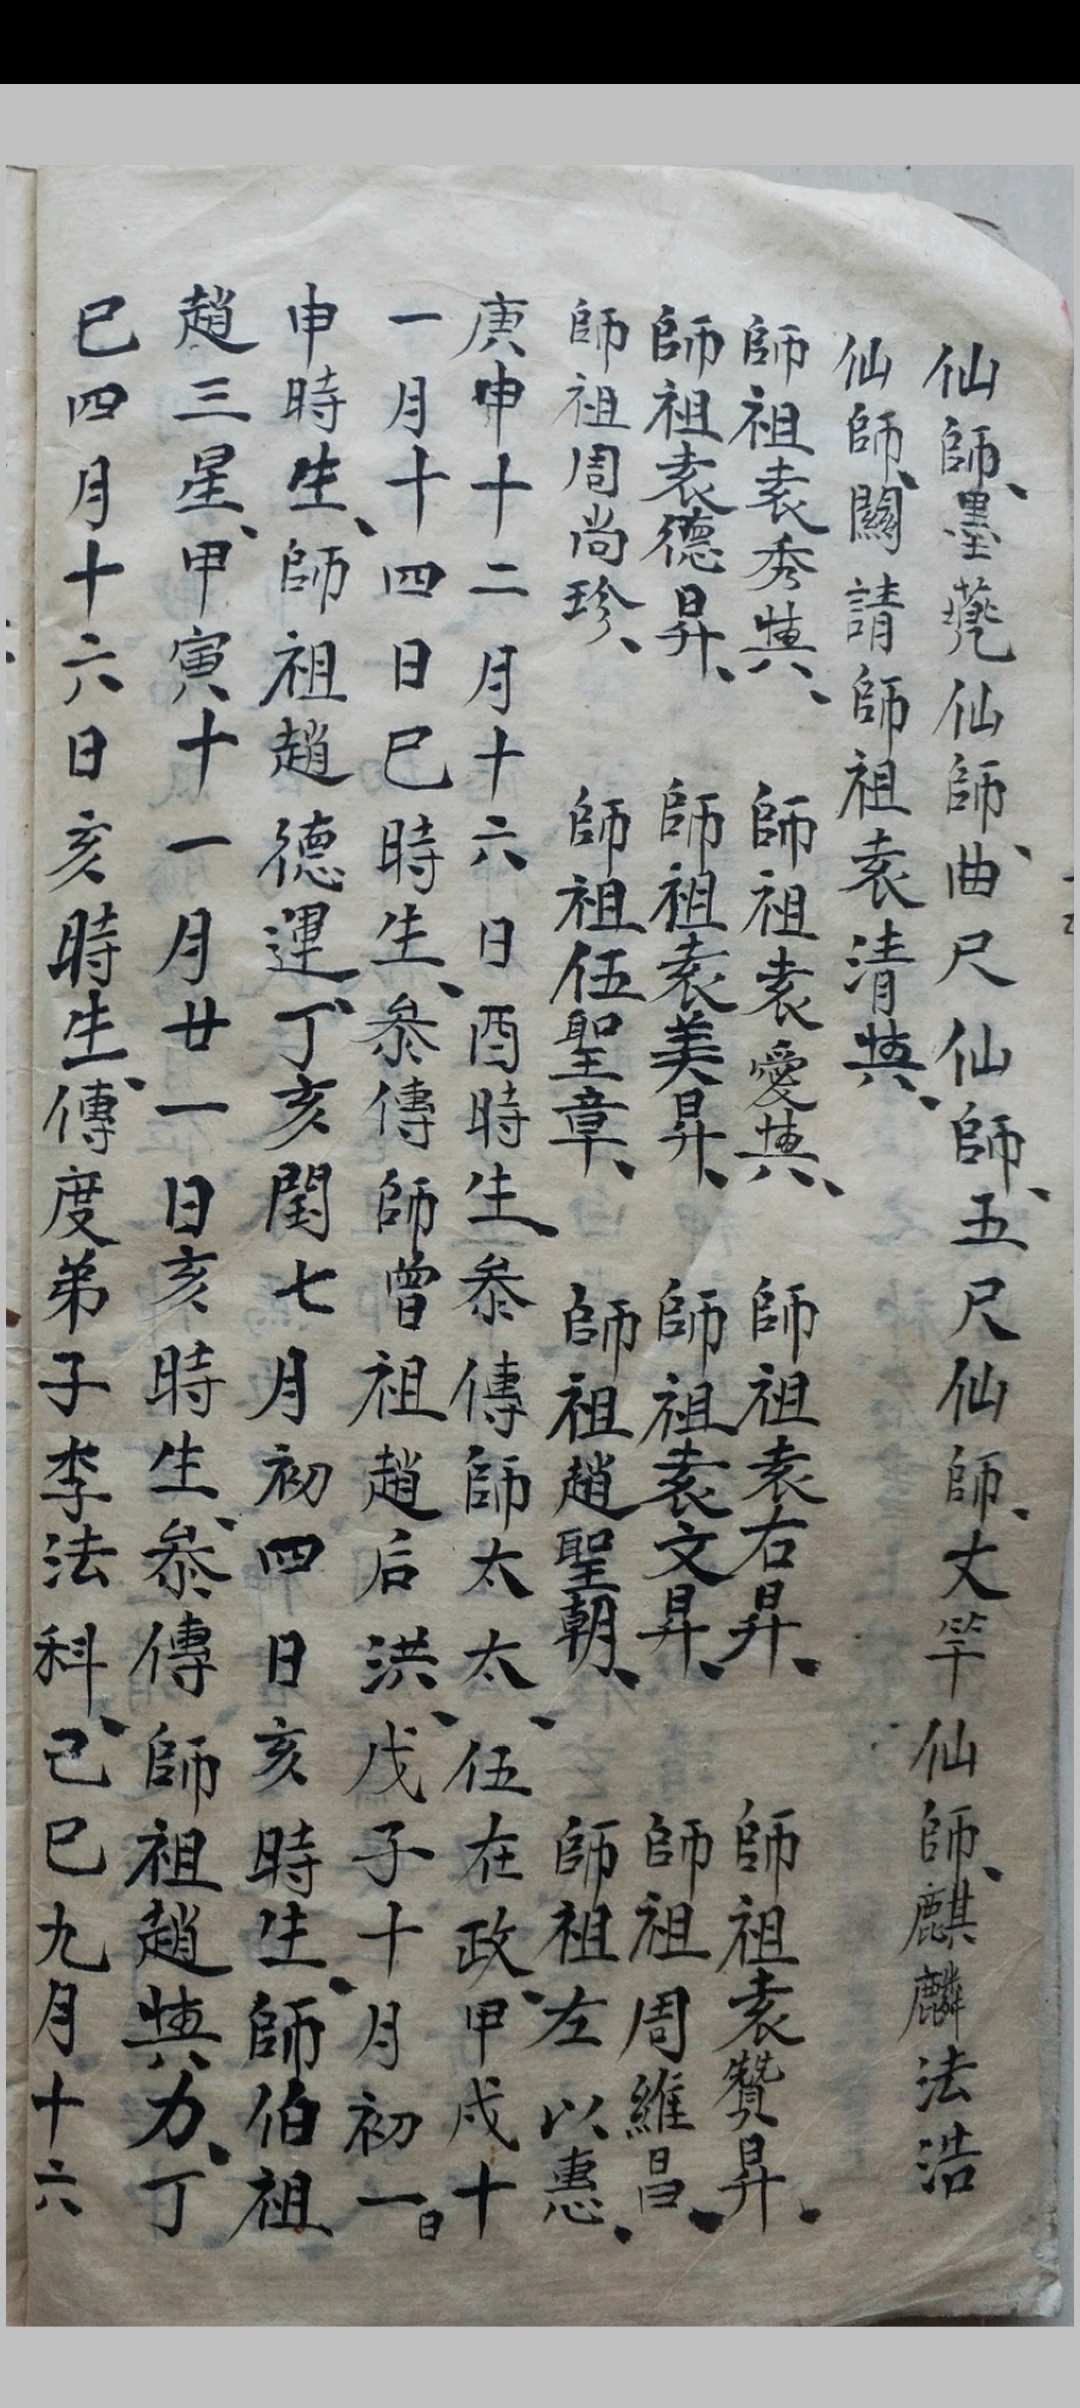 仙師、墨蓖仙師、曲尺仙師、五尺仙師、丈竿仙師、麒麟法浩
仙師、關請師祖袁清典、
師祖袁秀典、師祖袁愛典、師祖袁右昇、師祖袁贊昇、
師祖袁德昇、師祖袁美昇、師祖袁文昇、師祖周維昌、
師祖周尚珍、師祖伍聖章、師祖趙聖朝、師祖左以惠、
庚申十二月十六日酉時生、叅傳師太太、伍在政、甲戌十
一月十四日巳時生、叅傳師曾祖趙后洪、戊子十月初一日
申時生、師祖趙德運、丁亥閏七月初四日亥時生、師伯祖
趙三星、甲寅十一月廿一日亥時生、叅傳師祖趙典力、丁
巳四月十六日亥時生、傳度弟子李法科、己巳九月十六